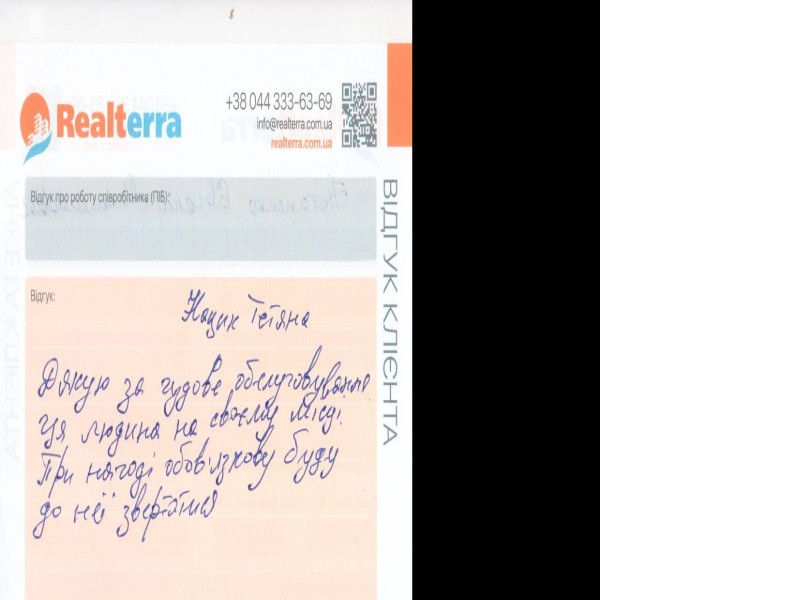 Realterra
+38 044 333-63-69
info@realterra.com.ua
realterra.com.ua
Відгук про роботу співробітника (ПІБ):
ВІДГУК КЛІЄНТА
Відгук:
Нацик Тетяна
Дякую за чудове обслуговування
Ця людина на своєму місці.
При нагоді обов'язкову буду
до неї звертатися
АНКЕТА КЛІЄНТА